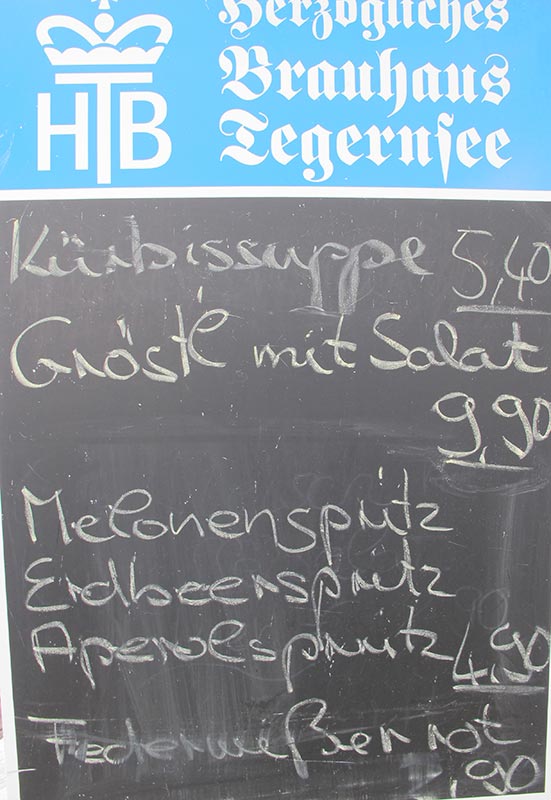 HTB
Herzogliches
Brauhaus
Tegernsee
Kürbissuppe 5,40
Gröstl mit Salat
9,90
Melonenspritz
Erdbeerspritz
Aperolspritz 4,90
rot
,90